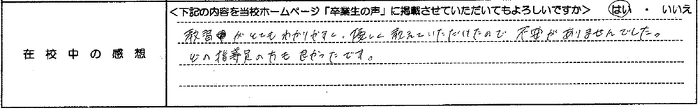 <下記の内容を当校ホームページ「卒業生の声」に掲載させていただいてもよろしいですか> はい ・ いいえ
在校中の感想
教習がとてもわかりやすく、優しく教えていただけたので不安がありませんでした。
の指導員の方も良かったです。